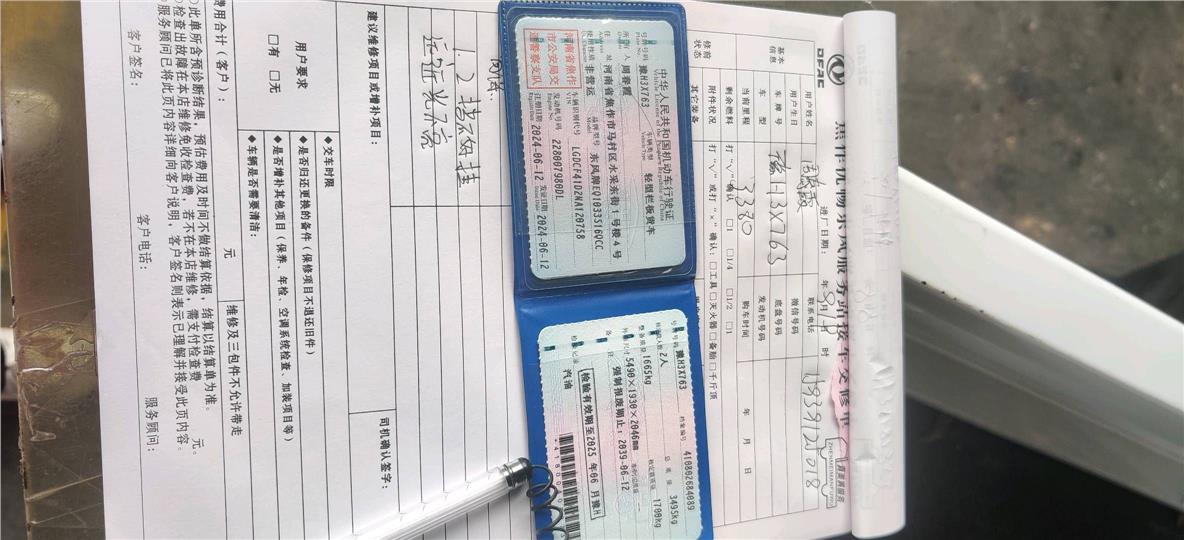 焦作优畅东风服务站接车交修单
DFAC
真美满服务
ZHENMEIMANFUWU
基本信息
用户姓名
进厂日期: 年8月 日 时
联系电话
用户生日
微信号码
车牌号
豫H3X763
底盘号码
车型
发动机号码
当前里程
3380
购车时间
年 月 日
修前状态
剩余燃料
打“√”确认 □1 □1/4 □1/2 □1
附件状况
打“√”或打“×”确认: □工具 □灭火器 □备胎 □千斤顶
其它装备
中华人民共和国机动车行驶证
Vehicle License of the People's Republic of China
号牌号码 豫H3X763 车辆类型 轻型栏板货车
Plate No. Vehicle Type
所有人 周春霞
Owner
住址 河南省焦作市马村区水采东街1号楼4号
Address
使用性质 非营运 品牌型号 东风牌EQ1033S16QCC
Use Character Model
河南省焦作市公安局交通警察支队
车辆识别代号 LGDCF41D2NA120758
VIN
发动机号码 228007980DL
Engine No.
注册日期 2024-06-12 发证日期 2024-06-12
Register Date Issue Date
号牌号码 豫H3X763 档案编号 410802684089
核定载人数 2人 总质量 3495kg
整备质量 1665kg 核定载质量 1700kg
外廓尺寸 5490×1930×2046mm 准牵引总质量
备注 强制报废期止:2039-06-12
检验有效期至2025年06月豫H
检验记录 汽油
1.2挡不好挂
远近光不亮
建议维修项目或增补项目:
司机确认签字:
用户要求
◆交车时限
◆是否归还更换的备件(保修项目不退还旧件)
◆是否增补其他项目(保养、年检、空调系统检查、加装项目等)
□有 □无
◆车辆是否需要清洁:
费用合计(客户): 元
维修及三包件不允许带走
①此单所含预诊断结果、预估费用及时间不做结算依据,结算以结算单为准。
②检查出故障在本店维修免收检查费,若不在本店维修,需支付检查费 元。
服务顾问已将此页内容详细向客户说明,客户签名则表示已理解并接受此页内容。
客户签名: 客户电话: 服务顾问: